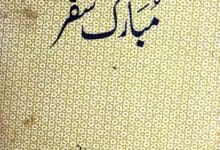 مُبارک سفر